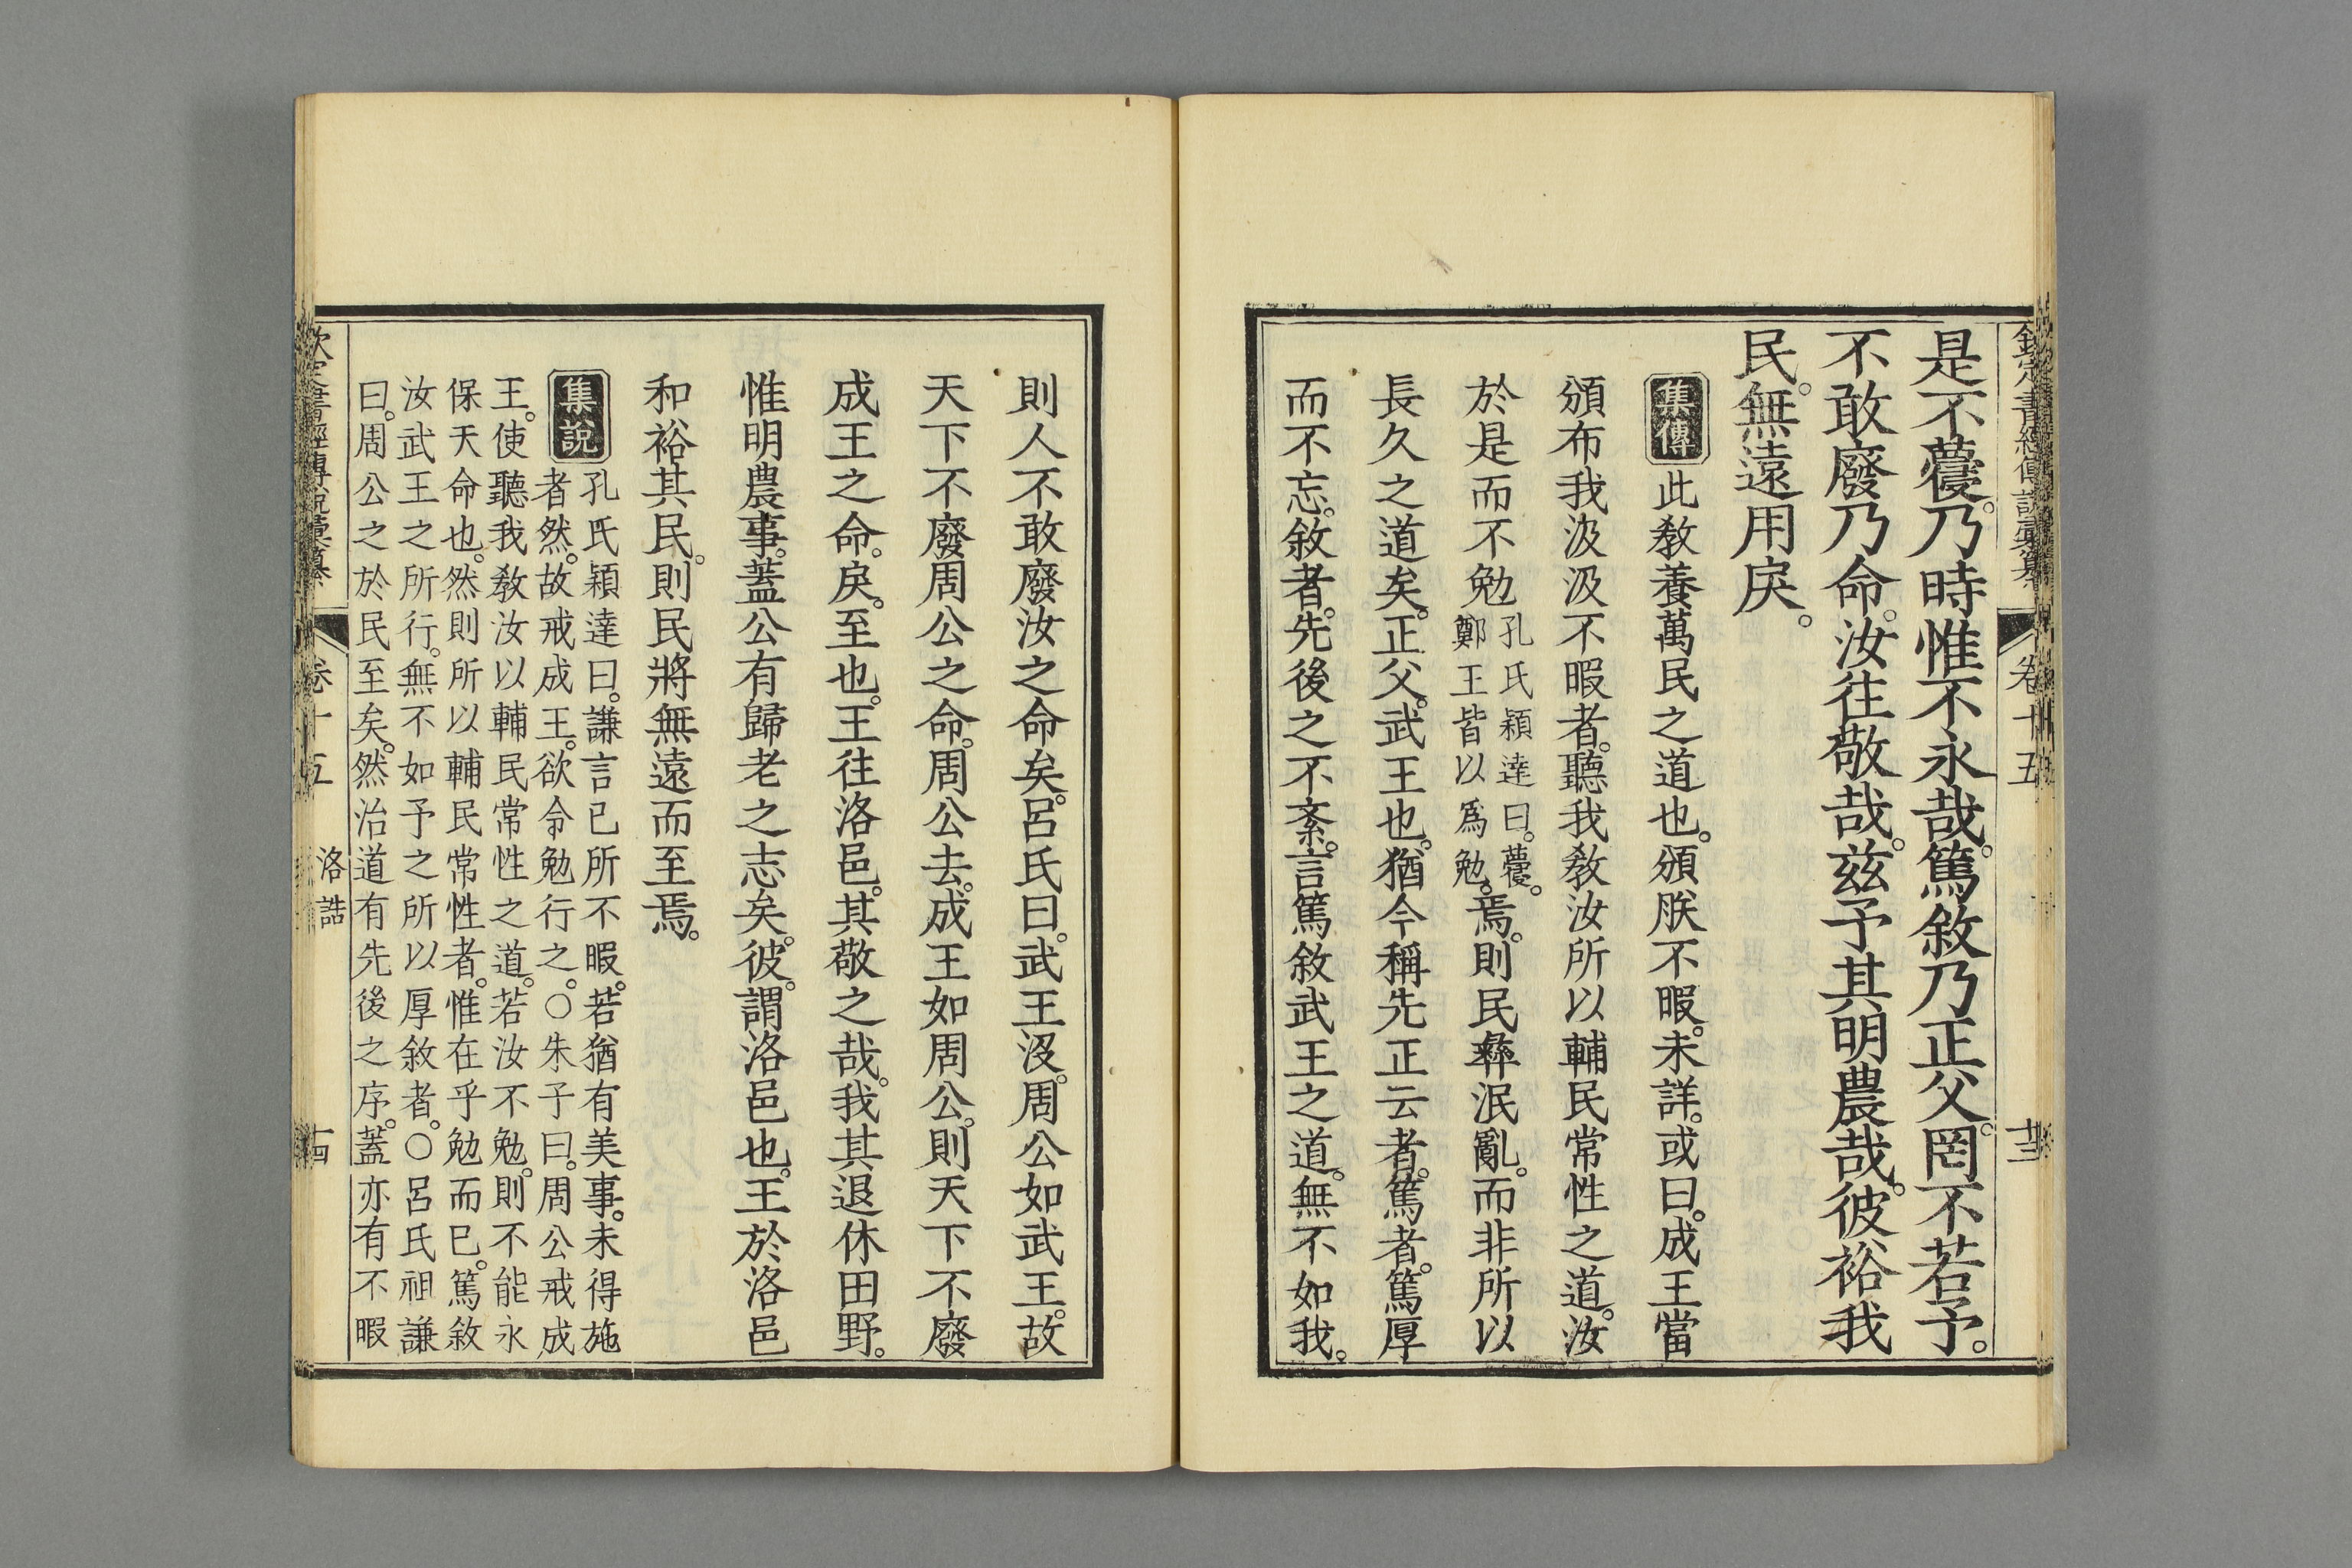 欽定書經傳說彙纂 卷十五 十三
是不蘉。乃時惟不永哉。篤敘乃正父。罔不若予。
不敢廢乃命。汝往敬哉。茲予其明農哉。彼裕我
民。無遠用戾。
集傳 此教養萬民之道也。頒朕不暇。未詳。或曰。成王當
頒布我汲汲不暇者。聽我教汝所以輔民常性之道。汝
於是而不勉
孔氏穎達曰。蘉。
鄭王皆以爲勉。
焉。則民彝泯亂。而非所以
長久之道矣。正父。武王也。猶今稱先正云者。篤者。篤厚
而不忘。敘者。先後之不紊。言篤敘武王之道。無不如我。
則人不敢廢汝之命矣。呂氏曰。武王沒。周公如武王。故
天下不廢周公之命。周公去。成王如周公。則天下不廢
成王之命。戾。至也。王往洛邑。其敬之哉。我其退休田野。
惟明農事。蓋公有歸老之志矣。彼。謂洛邑也。王於洛邑
和裕其民。則民將無遠而至焉。
集說 孔氏穎達曰。謙言已所不暇。若猶有美事。未得施
者然。故戒成王。欲令勉行之。○朱子曰。周公戒成
王。使聽我教汝以輔民常性之道。若汝不勉。則不能永
保天命也。然則所以輔民常性者。惟在乎勉而已。篤敘
汝武王之所行。無不如予之所以厚敘者。○呂氏祖謙
曰。周公之於民至矣。然治道有先後之序。蓋亦有不暇
欽定書經傳說彙纂 卷十五 洛誥 十四